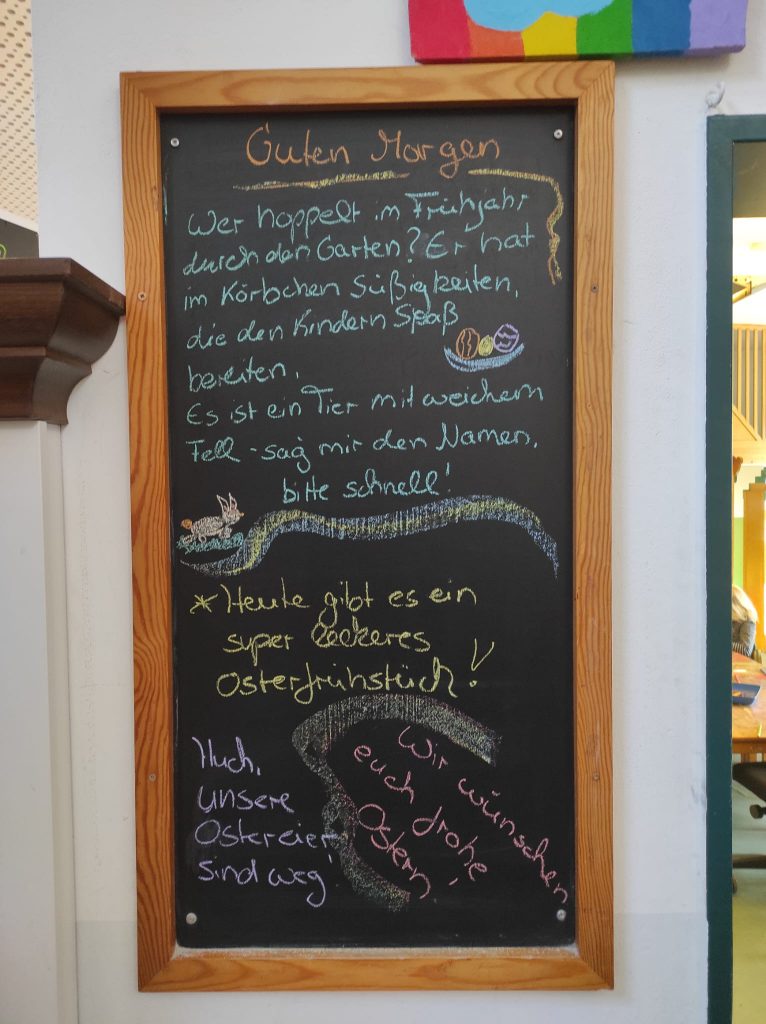 Guten Morgen
Wer hoppelt im Frühjahr
durch den Garten? Er hat
im Körbchen Süßigkeiten,
die den Kindern Spaß
bereiten.
Es ist ein Tier mit weichem
Fell - sag mir den Namen,
bitte schnell!
* Heute gibt es ein
super leckeres
Osterfrühstück!
Huch,
unsere
Ostereier
sind weg!
Wir wünschen
euch frohe
Ostern!